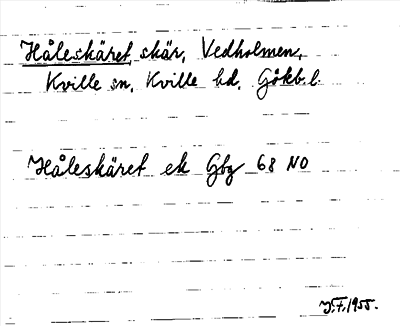 Håleskäret, skär, Vedholmen,
Kville sn, Kville hd, Gökb. l.
Håleskäret ek Gbg 68 NO
1955.